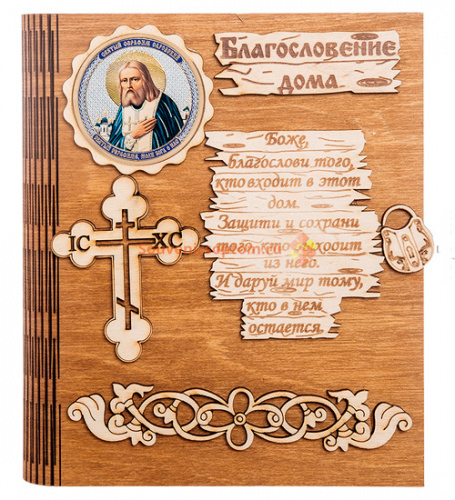 СВЯТЫЙ СЕРАФИМ САРОВСКИЙ
СВЯТЫЙ СЕРАФИМЕ, МОЛИ БОГА О НАС
Благословение
дома
Боже,
благослови того,
кто входит в этот
дом.
Защити и сохрани
того, кто выходит
из него.
И даруй мир тому,
кто в нем
остается.
IC XC